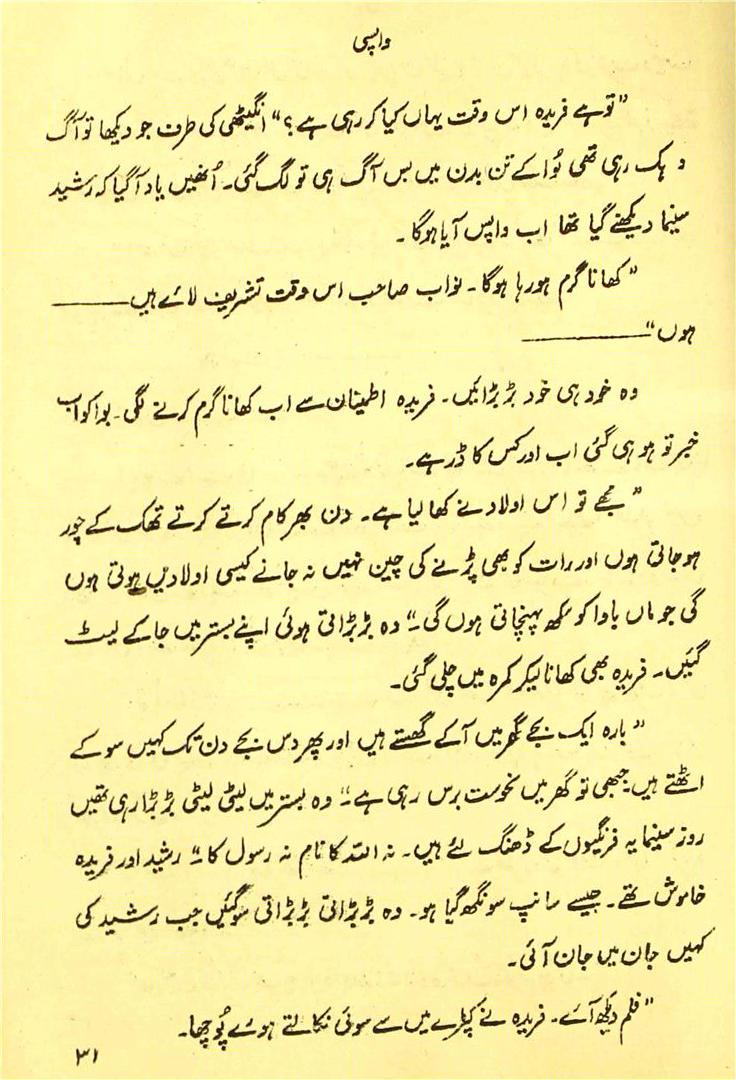 واپسی
”توہے فریدہ اس وقت یہاں کیا کر رہی ہے؟“ انگیٹھی کی طرف جو دیکھا تو آگ
دہک رہی تھی بُوا کے تن بدن میں بس آگ ہی تو لگ گئی۔ اُنھیں یاد آگیا کہ رشید
سینما دیکھنے گیا تھا اب واپس آیا ہوگا۔
”کھانا گرم ہو رہا ہوگا۔ نواب صاحب اس وقت تشریف لائے ہیں ــــــــ
ہوں“ ــــــــــــــ
وہ خود ہی خود بڑبڑائیں۔ فریدہ اطمینان سے اب کھانا گرم کرنے لگی۔ بوا کو اب
خبر تو ہو ہی گئی اب اور کس کا ڈر ہے۔
”مجھے تو اس اولاد نے کھا لیا ہے۔ دن بھر کام کرتے کرتے تھک کے چور
ہو جاتی ہوں اور رات کو بھی پڑنے کی چین نہیں نہ جانے کیسی اولادیں ہوتی ہوں
گی جو ماں باوا کو سکھ پہنچاتی ہوں گی۔“ وہ بڑبڑاتی ہوئی اپنے بستر میں جا کے لیٹ
گئیں۔ فریدہ بھی کھانا لیکر کمرہ میں چلی گئی۔
”بارہ ایک بجے گھر میں آکے گھستے ہیں اور پھر دس بجے دن تک کہیں سو کے
اٹھتے ہیں جبھی تو گھر میں نحوست برس رہی ہے۔“ وہ بستر میں لیٹی لیٹی بڑبڑا رہی تھیں
روز سینما یہ فرنگیوں کے ڈھنگ لئے ہیں۔ نہ اللہ کا نام نہ رسول کا۔“ رشید اور فریدہ
خاموش تھے۔ جیسے سانپ سونگھ گیا ہو۔ وہ بڑبڑاتی بڑبڑاتی سو گئیں جب رشید کی
کہیں جان میں جان آئی۔
”فلم دیکھ آئے۔ فریدہ نے کپڑے میں سے سوئی نکالتے ہوئے پُوچھا۔
۳۱